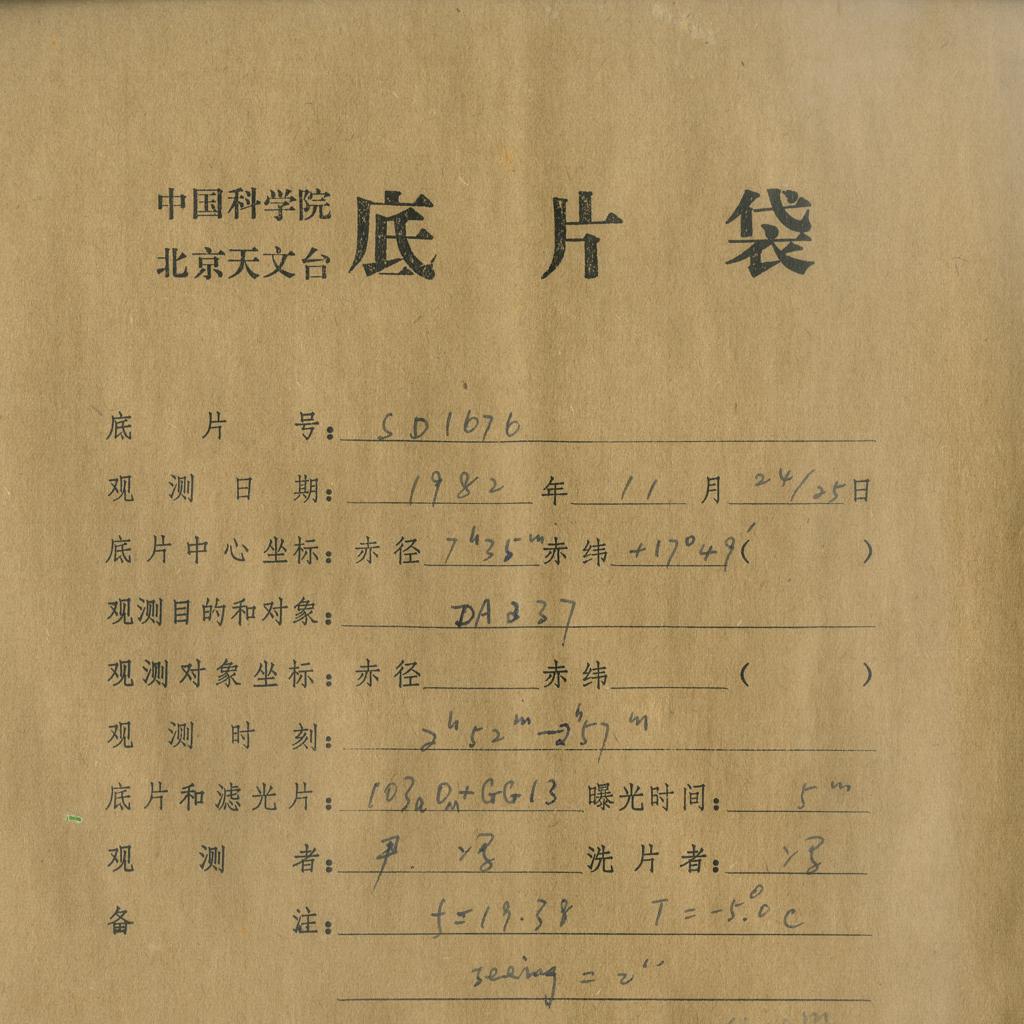 中国科学院
北京天文台 底片袋
底片号：SD1676
观测日期：1982年11月24/25日
底片中心坐标：赤径 7ʰ35ᵐ 赤纬 +17°49′( )
观测目的和对象：DA 237
观测对象坐标：赤径 赤纬 ( )
观测时刻：2ʰ52ᵐ—2ʰ57ᵐ
底片和滤光片：103aO+GG13 曝光时间：5ᵐ
观测者：尹. 冯 洗片者：冯
备注：f=19.38 T=-5.0°C
seeing = 2″